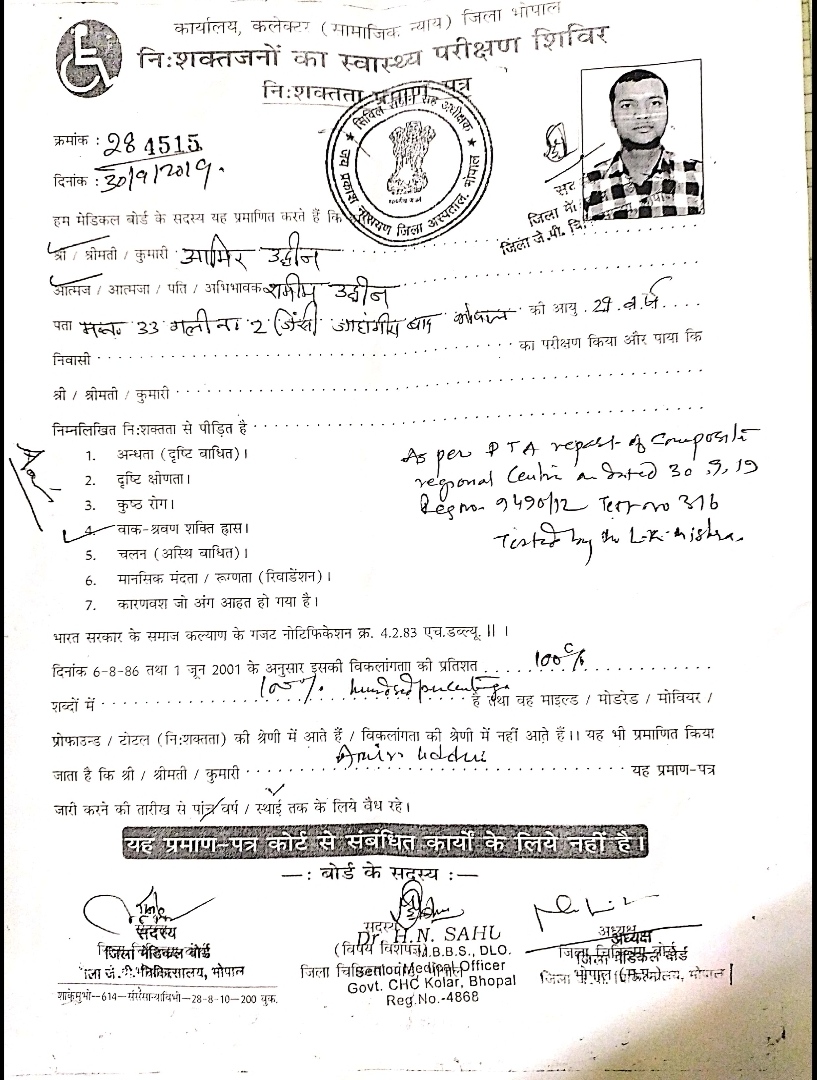 कार्यालय, कलेक्टर (सामाजिक न्याय) जिला भोपाल
नि:शक्तजनों का स्वास्थ्य परीक्षण शिविर
नि:शक्तता प्रमाण-पत्र
सिविल सर्जन सह अधीक्षक
जय प्रकाश नारायण जिला अस्पताल, भोपाल
क्रमांक : 28 4515
दिनांक : 30/9/2019
हम मेडिकल बोर्ड के सदस्य यह प्रमाणित करते हैं कि
जिला जे.पी. चि
श्री / श्रीमती / कुमारी आमिर उद्दीन
आत्मज / आत्मजा / पति / अभिभावक शमीम उद्दीन
पता म.न. 33 गली न 2 जिंसी जहांगीरा बाद भोपाल की आयु 29 वर्ष
निवासी का परीक्षण किया और पाया कि
श्री / श्रीमती / कुमारी
निम्नलिखित नि:शक्तता से पीड़ित है
1. अन्धता (दृष्टि बाधित)।
2. दृष्टि क्षीणता।
3. कुष्ठ रोग।
4. वाक-श्रवण शक्ति ह्रास।
5. चलन (अस्थि बाधित)।
6. मानसिक मंदता / रूग्णता (रिवार्डेशन)।
7. कारणवश जो अंग आहत हो गया है।
As per PTA report of Composite
regional Centre on dated 30.9.19
Reg no. 9490/12 Test no 316
Tested by L.K. Mishra.
भारत सरकार के समाज कल्याण के गजट नोटिफिकेशन क्र. 4.2.83 एच.डब्ल्यू. II ।
दिनांक 6-8-86 तथा 1 जून 2001 के अनुसार इसकी विकलांगता की प्रतिशत 100%
शब्दों में 100% hundred percentage है तथा वह माइल्ड / मोडरेड / मोवियर /
प्रोफाउन्ड / टोटल (नि:शक्तता) की श्रेणी में आते हैं / विकलांगता की श्रेणी में नहीं आते हैं।। यह भी प्रमाणित किया
जाता है कि श्री / श्रीमती / कुमारी Amir Uddin यह प्रमाण-पत्र
जारी करने की तारीख से पांच वर्ष / स्थाई तक के लिये वैध रहे।
यह प्रमाण-पत्र कोर्ट से संबंधित कार्यों के लिये नहीं है।
—: बोर्ड के सदस्य :—
सदस्य
जिला मेडिकल बोर्ड
चिकित्सालय, भोपाल
सदस्य
Dr. H.N. SAHU
(विषय विशेषज्ञ) M.B.B.S., DLO.
Senior Medical Officer
Govt. CHC Kolar, Bhopal
Reg.No.-4868
अध्यक्ष
जिला मेडिकल बोर्ड
भोपाल (म.प्र.)
28-8-10-200 बुक.